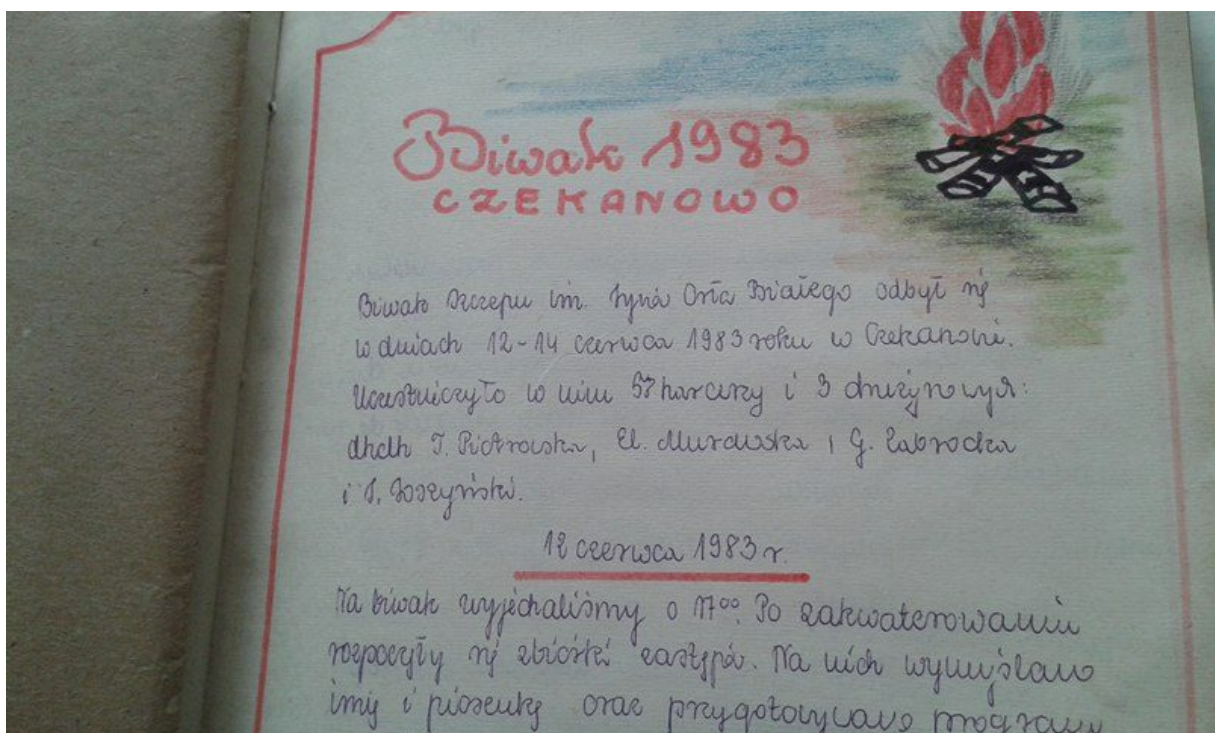 Biwak 1983
CZEKANOWO
Biwak Szczepu im. Orła Białego odbył się
w dniach 12-14 czerwca 1983 roku w Czekanowie.
Uczestniczyło w nim 57 harcerzy i 3 drużynowych:
dhdh T. Piotrowska, El. Murawska i G. Zabrocka
i
12 czerwca 1983 r.
Na biwak wyjechaliśmy o 17⁰⁰. Po zakwaterowaniu
rozpoczęły się zbiórki zastępów. Na nich wymyślano
imię i piosenkę oraz przygotowywano programy